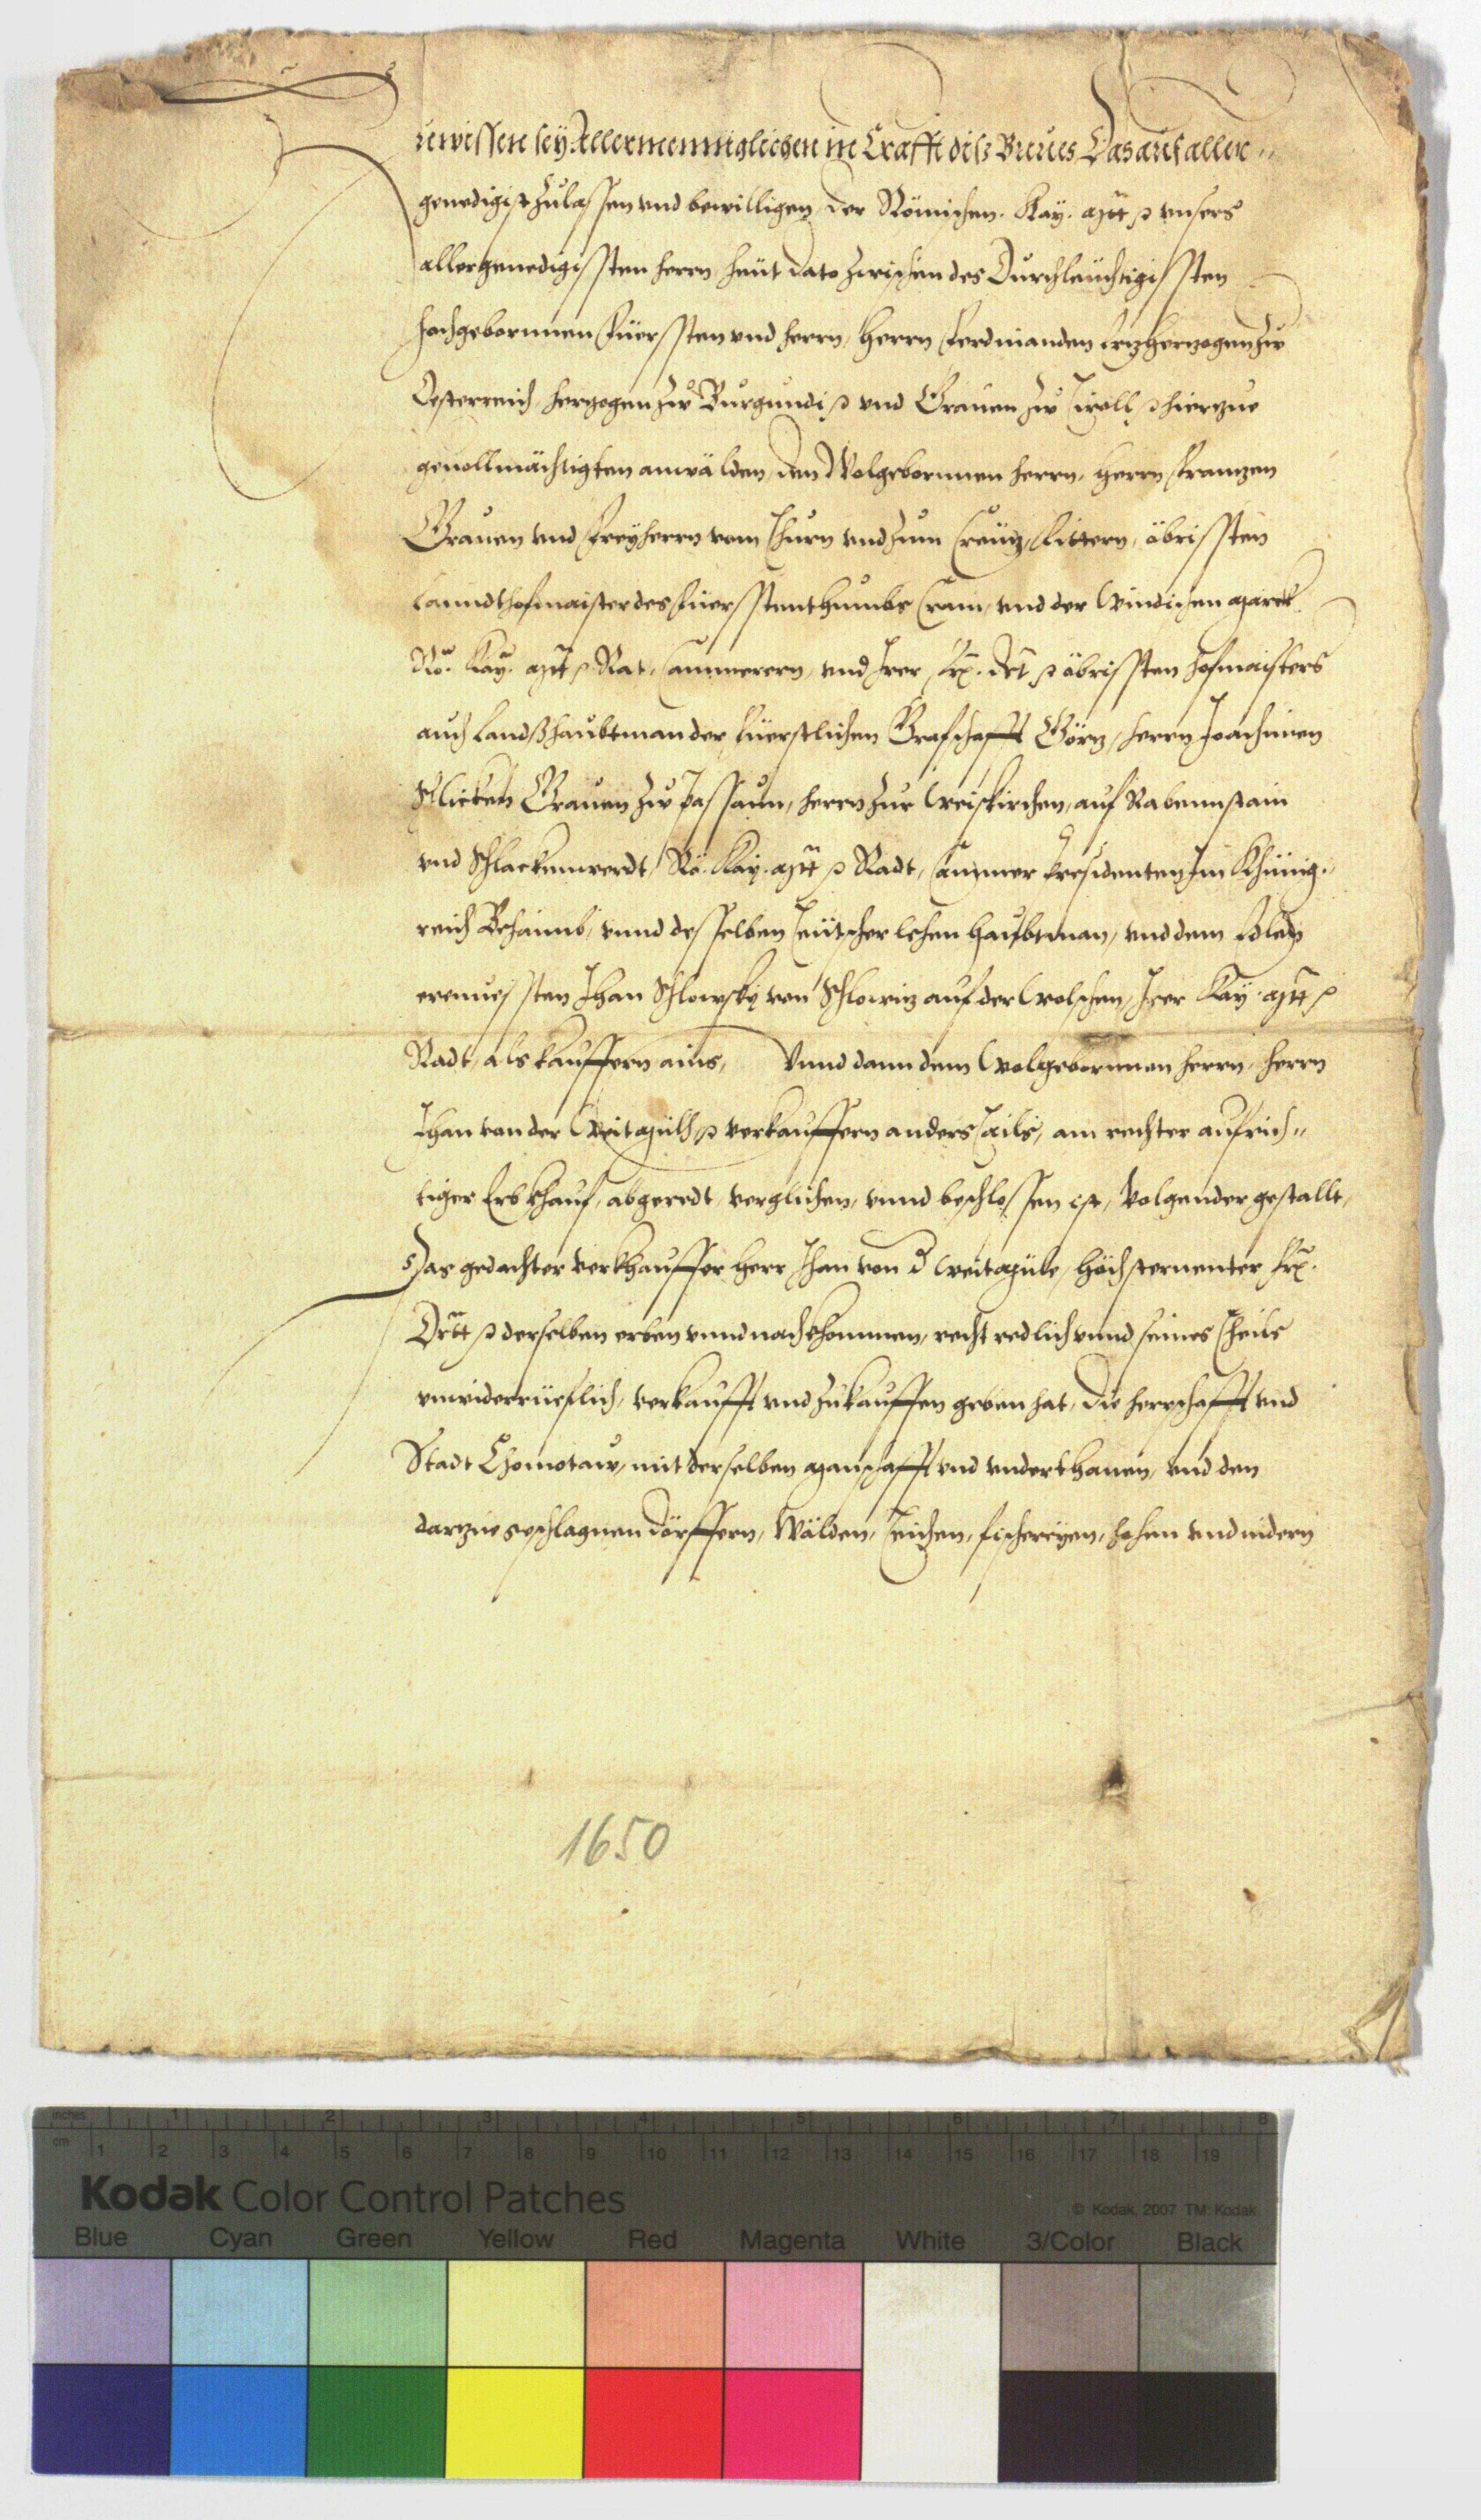 Zuwissen sey Allermenniglichen in Crafft diß Brieues, Das auf aller=
genedigist zulassen vnd bewilligen, der Römischen. Kay. Mtt ꝛc vnsers
allergenedigissten herrn, heut dato zwischen des Durchleuchtigissten
hochgebornnen Fürssten vnd herrn, Herrn Ferdinanden Erzherzogen zw
Össterreich, Herzogen zw Burgundi ꝛc vnd Grauen zw Tiroll ꝛc hierzue
geuollmächtigten anwälden, den Wolgebornnen herrn, Herrn Franzen
Grauen vnd Freyherrn vom Thurn vnd zum Creüz, Rittern, öbrissten
Lanndthofmaister des Fürsstenthumbs Crain, vnd der Windischen March
Rö. Kay. Mtt ꝛc Rat, Cammerern, vnd Irer Frz. Drt ꝛc öbrissten hofmaisters
auch Landßhaubtman der Fürstlichen Grafschafft Görz, herrn Joachimen
Schlicken Grauen zw Passaun, herrn zur Weiskirchen, auf Rabennstain
vnd Schlackenwerdt, Rö. Kay. Mtt ꝛc Radt, Cammer Presidenten Im Khünig=
reich Behaimb, vnnd desselben Teütscher lehen Haubtman, vnd dem Edlen
erenuessten Jhan Schlowsky von Schlowiz auf der Wolschen, Irer Kay. Mtt ꝛc
Radt, als kauffern ains, Vnnd dann dem Wolgebornnen herrn, herrn
Jhan von der Weitmülh ꝛc verkauffern anders Tails, ain rechter aufrich=
tiger Erbkhauf, abgeredt, verglichen, vnnd beschlossen ist, Volgender gestallt,
Das gedachter verkhauffer Herr Jhan von d Weitmüle, höchsternenter Frz.
Drtt ꝛc derselben erben vnnd nachkhommen, recht redlich vnnd seines Theils
vnwiderrüeflich, verkaufft vnd zukauffen geben hat, Die herrschafft vnd
Stadt Chomotaw, mit derselben Manschafft vnd vnderthanen, vnd den
darzue geschlagnen dörffern, Wälden, Teichen, fischereyen, hohen vnd nidern
1650
inches 1 2 3 4 5 6 7 8
cm 1 2 3 4 5 6 7 8 9 10 11 12 13 14 15 16 17 18 19
Kodak Color Control Patches
© Kodak, 2007 TM: Kodak
Blue Cyan Green Yellow Red Magenta White 3/Color Black